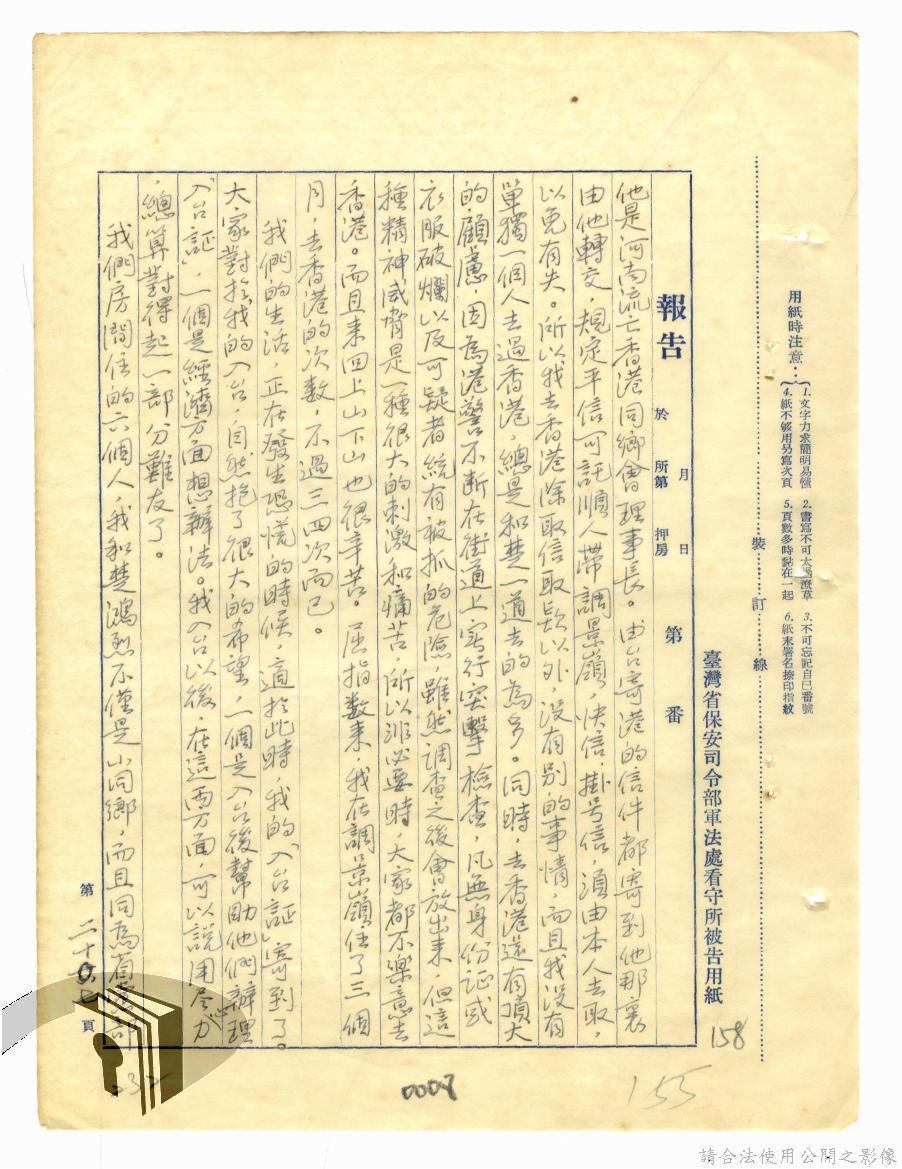 用紙時注意：
1.文字力求簡明易懂　2.書寫不可太過潦草　3.不可忘記自己番號
4.紙不够用另寫次頁　5.頁數多時黏在一起　6.紙末署名捺印指紋
裝　訂　線
臺灣省保安司令部軍法處看守所被告用紙
158
報告　於　月　日　所第　押房　第　番
他是河南流亡香港同鄉會理事長。由台寄港的信件都寄到他那裏
由他轉交，規定平信可託順人帶調景嶺，快信，掛号信，須由本人去取，
以免有失。所以我去香港除取信取款以外，没有別的事情，而且我没有
單獨一個人去過香港，總是和楚一道去的為多。同時，去香港還有頂大
的顧慮，因為港警不斷在街道上実行突擊檢查，凡無身份証或
衣服破爛以及可疑者統有被抓的危險，雖然調查之後會放出來，但這
種精神威脅是一種很大的刺激和痛苦，所以非必要時，大家都不樂意去
香港。而且来回上山下山也很辛苦。屈指数来，我在調景嶺住了三個
月，去香港的次数，不過三四次而已。
我們的生活，正在發生恐慌的時候，適於此時，我的「入台証」寄到了。
大家對於我的入台，自然抱了很大的希望，一個是入台後幫助他們辦理
「入台証」，一個是經濟方面想辦法。我入台以後，在這両方面，可以說用尽心力
，總算對得起一部分難友了。
我們房間住的六個人，我和楚鴻烈不僅是小同鄉，而且同為省
第　二十七　頁
0008
155
請合法使用公開之影像